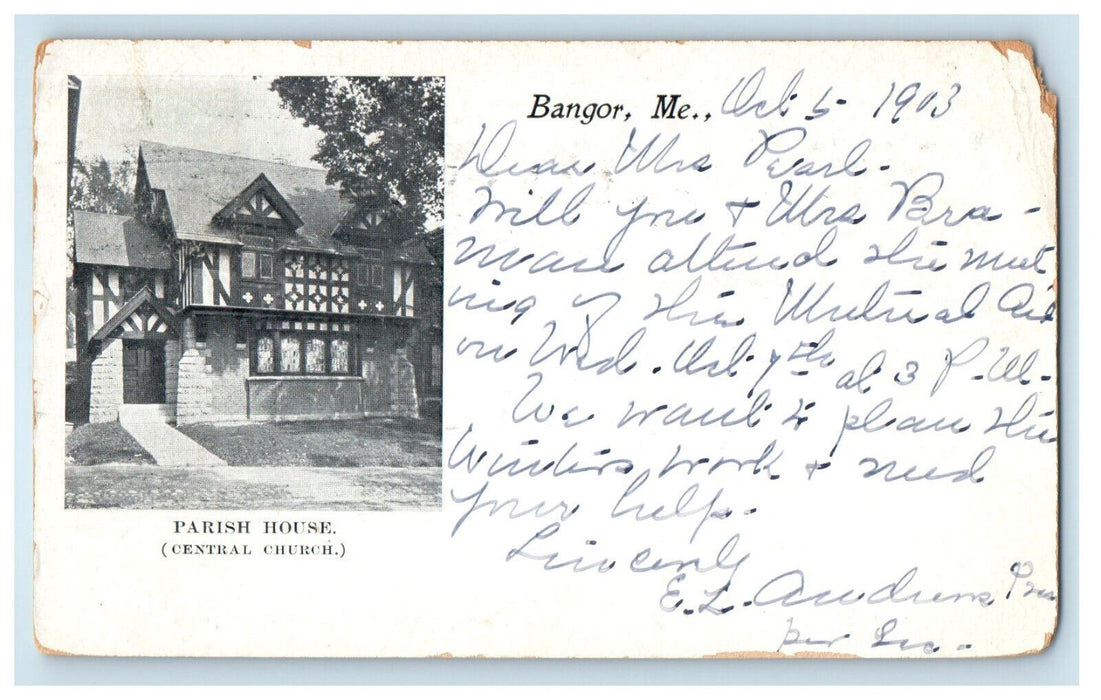 Bangor, Me., Oct 5 - 1903
Dear Mrs Pearl -
Will you & Mrs Bra -
man attend the meet
ing of the Mutual Aid
on Wed. Oct 7th at 3 P.M.
We want to plan the
Winters work & need
your help -
Sincerely
E. L. Andrews Pres
per Sec. -
PARISH HOUSE.
(CENTRAL CHURCH.)